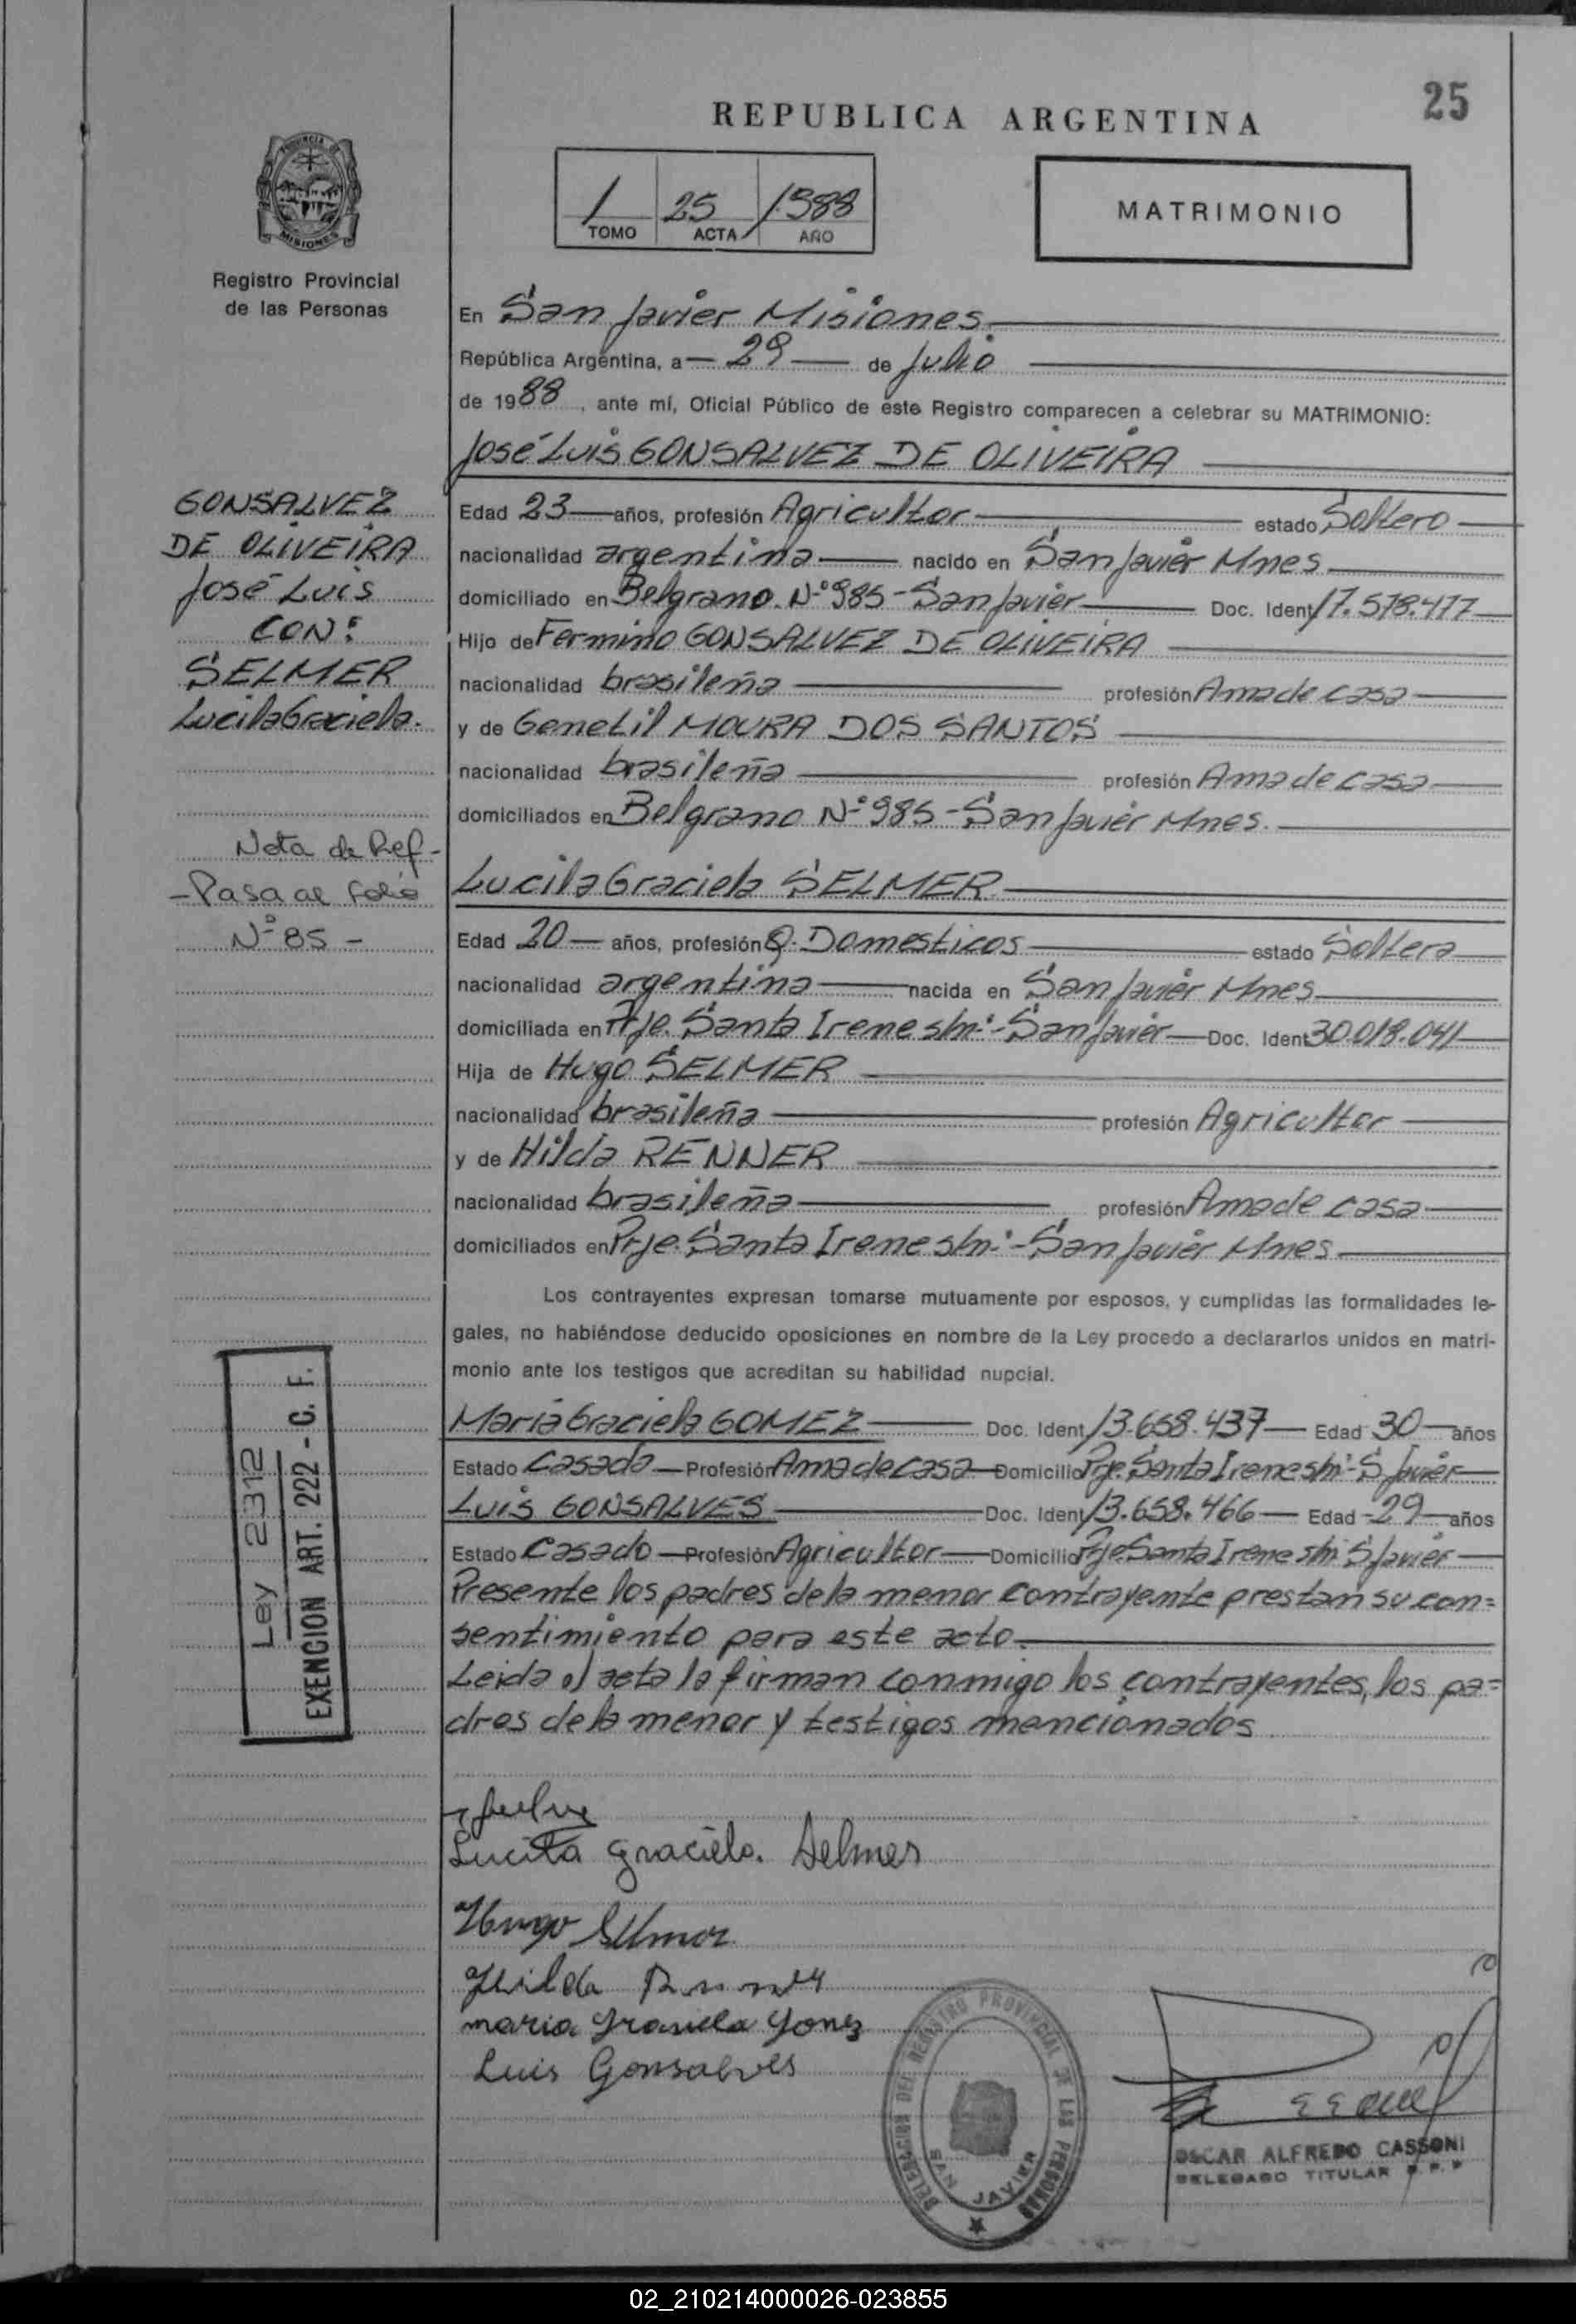 25
REPUBLICA ARGENTINA
PROVINCIA DE MISIONES
Registro Provincial
de las Personas
1 25 1988
TOMO ACTA AÑO
MATRIMONIO
En San Javier Misiones
República Argentina, a 29 de Julio
de 1988, ante mí, Oficial Público de este Registro comparecen a celebrar su MATRIMONIO:
José Luis GONSALVEZ DE OLIVEIRA
GONSALVEZ
DE OLIVEIRA
José Luis
CON:
SELMER
Lucila Graciela.
Nota de Ref-
-Pasa al Folio
Nº 85 -
Edad 23 años, profesión Agricultor estado Soltero
nacionalidad argentina nacido en San Javier Mnes
domiciliado en Belgrano Nº 985 - San Javier Doc. Ident 17.578.477
Hijo de Fermino GONSALVEZ DE OLIVEIRA
nacionalidad brasileña profesión Ama de casa
y de Genetil MOURA DOS SANTOS
nacionalidad brasileña profesión Ama de casa
domiciliados en Belgrano Nº 985 - San Javier Mnes.
Lucila Graciela SELMER
Edad 20 años, profesión Q. Domesticos estado Soltera
nacionalidad argentina nacida en San Javier Mnes
domiciliada en Pje. Santa Irene s/n: - San Javier Doc. Ident 30.018.041
Hija de Hugo SELMER
nacionalidad brasileña profesión Agricultor
y de Hilda RENNER
nacionalidad brasileña profesión Ama de casa
domiciliados en Pje. Santa Irene s/n: - San Javier Mnes
Los contrayentes expresan tomarse mutuamente por esposos, y cumplidas las formalidades le-
gales, no habiéndose deducido oposiciones en nombre de la Ley procedo a declararlos unidos en matri-
monio ante los testigos que acreditan su habilidad nupcial.
María Graciela GOMEZ Doc. Ident 13.658.437 Edad 30 años
Estado Casada Profesión Ama de casa Domicilio Pje. Santa Irene s/n - S. Javier
Luis GONSALVES Doc. Ident 13.658.466 Edad 29 años
Estado Casado Profesión Agricultor Domicilio Pje Santa Irene s/n S Javier
Presente los padres de la menor contrayente prestan su con=
sentimiento para este acto.
Leida el acta la firman conmigo los contrayentes, los pa=
dres de la menor y testigos mencionados
Ley 2312
EXENCION ART. 222 - C. F.
Lucila Graciela. Selmer
Hugo Selmer
Hilda Renner
maria Grasiela Gomez
Luis Gonsalves
DELEGACION DEL REGISTRO PROVINCIAL DE LAS PERSONAS
SAN JAVIER
OSCAR ALFREDO CASSONI
DELEGADO TITULAR R. P. P
02_210214000026-023855